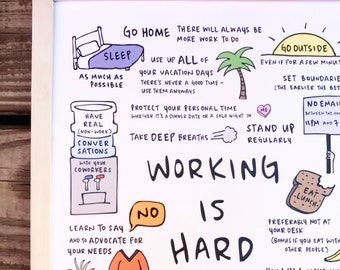 GO HOME THERE WILL ALWAYS BE
MORE WORK TO DO
SLEEP
AS MUCH AS
POSSIBLE
USE UP ALL OF
YOUR VACATION DAYS
THERE'S NEVER A GOOD TIME –
USE THEM ANYWAYS
GO OUTSIDE
EVEN IF FOR A FEW MINUTE
SET BOUNDARIE
(THE EARLIER THE BET
PROTECT YOUR PERSONAL TIME
WHETHER IT'S A DINNER DATE OR A SOLO NIGHT IN
ME
NO EMAIL
BETWEEN THE HO
11PM AND 7
HAVE
REAL
(NON-WORK)
CONVER
SATIONS
WITH YOUR
COWORKERS
TAKE DEEP BREATHS
STAND UP
REGULARLY
WORKING
IS
HARD
EAT
LUNCH
PREFERABLY NOT AT
YOUR DESK
(BONUS IF YOU EAT WITH
OTHER PEOPLE
NO
LEARN TO SAY
AND TO ADVOCATE FOR
YOUR NEEDS